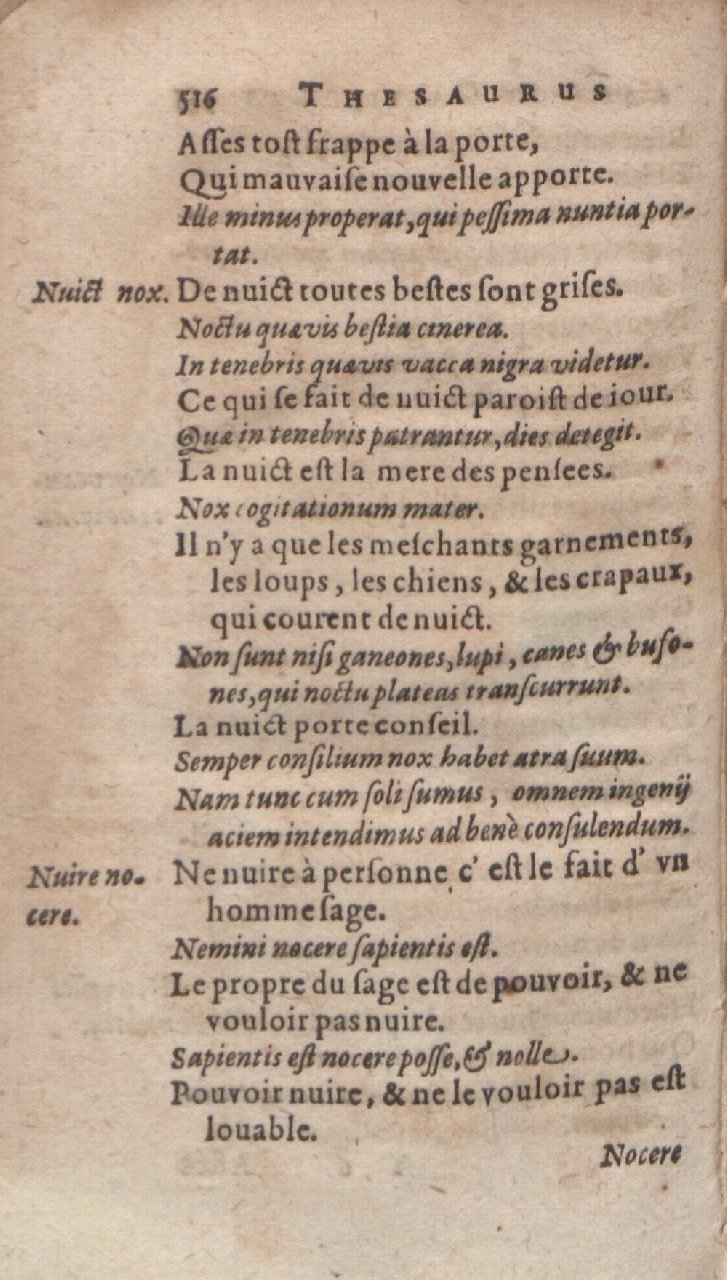 516 THESAURUS
Aſſes toſt frappe à la porte,
Qui mauvaiſe nouvelle apporte.
Ille minus properat, qui peſſima nuntia por-
tat.
Nuict nox. De nuict toutes beſtes ſont griſes.
Noctu quævis beſtia cinerea.
In tenebris quævis vacca nigra videtur.
Ce qui ſe fait de nuict paroiſt de iour.
Quæ in tenebris patrantur, dies detegit.
La nuict eſt la mere des penſees.
Nox cogitationum mater.
Il n'y a que les meſchants garnements,
les loups, les chiens, & les crapaux,
qui courent de nuict.
Non ſunt niſi ganeones, lupi, canes & bufo-
nes, qui noctu plateas tranſcurrunt.
La nuict porte conſeil.
Semper conſilium nox habet atra ſuum.
Nam tunc cum ſoli ſumus, omnem ingenij
aciem intendimus ad benè conſulendum.
Nuire no- Ne nuire à perſonne c' eſt le fait d' vn
cere. homme ſage.
Nemini nocere ſapientis eſt.
Le propre du ſage eſt de pouvoir, & ne
vouloir pas nuire.
Sapientis eſt nocere poſſe, & nolle.
Pouvoir nuire, & ne le vouloir pas eſt
louable.
Nocere